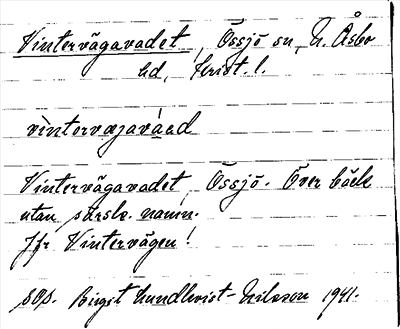 Vintervägavadet, Össjö sn, N. Åsbo
hd, Krist. l.
vìntərvæjavàad
Vintervägavadet, Össjö. Över bäck
utan särsk. namn.
Jfr Vintervägen!
sop. Birgit Lundkvist-Nilsson 1941.